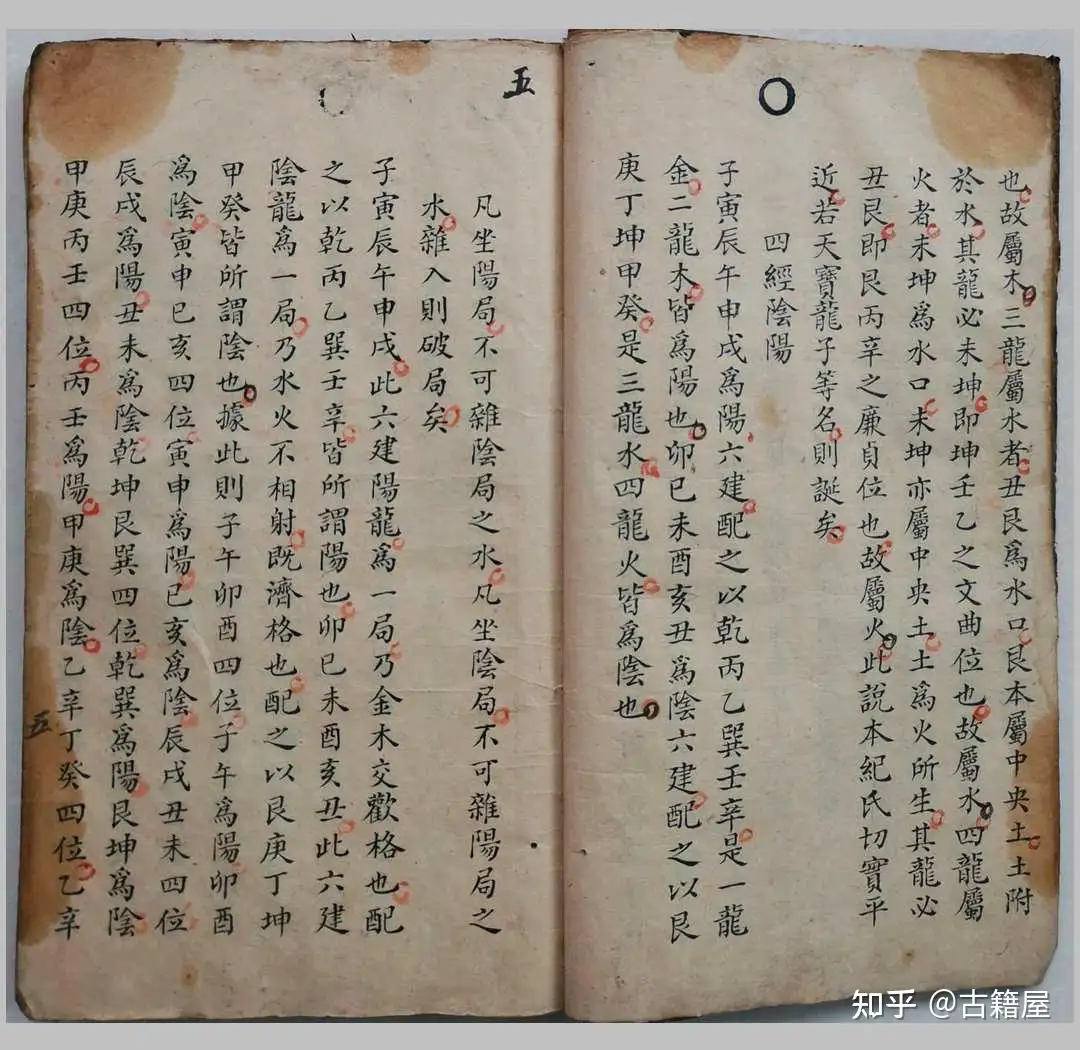 也故屬木三龍屬水者丑艮爲水口艮本屬中央土土附
於水其龍必未坤即坤壬乙之文曲位也故屬水四龍屬
火者未坤爲水口未坤亦屬中央土土爲火所生其龍必
丑艮即艮丙辛之廉貞位也故屬火此説本紀氏切實平
近若天寶龍子等名則誕矣
四經陰陽
子寅辰午申戌爲陽六建配之以乾丙乙巽壬辛是一龍
金二龍木皆爲陽也卯巳未酉亥丑爲陰六建配之以艮
庚丁坤甲癸是三龍水四龍火皆爲陰也
五
凡坐陽局不可雜陰局之水凡坐陰局不可雜陽局之
水雜入則破局矣
子寅辰午申戌此六建陽龍爲一局乃金木交歡格也配
之以乾丙乙巽壬辛皆所謂陽也卯巳未酉亥丑此六建
陰龍爲一局乃水火不相射既濟格也配之以艮庚丁坤
甲癸皆所謂陰也據此則子午卯酉四位子午爲陽卯酉
爲陰寅申巳亥四位寅申爲陽巳亥爲陰辰戌丑未四位
辰戌爲陽丑未爲陰乾坤艮巽四位乾巽爲陽艮坤爲陰
甲庚丙壬四位丙壬爲陽甲庚爲陰乙辛丁癸四位乙辛
五
知乎 @古籍屋